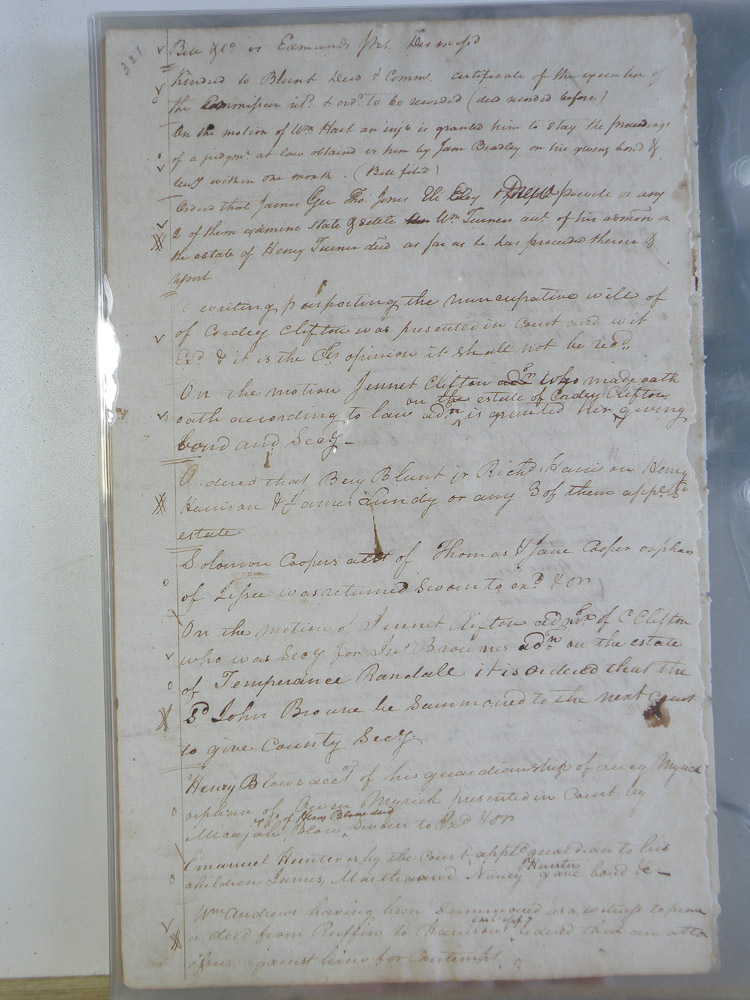 331
Bell &Co vs Edmunds Dismissd
Kindred to Blunt Deed & Comms. certificate of the execution of
the Commission retd. & ordd. to be recorded (deed recorded before)
On the motion of Wm Hart an injn is granted him to stay the proceedings
of a judgmt. at law obtained vs him by Jane Bradley on his giving bond &
Secy within one month. (Bill filed)
Ordered that James Gee Thos. Jones or any
2 of them examine state & settle Wm Turners acct. of his admon
the estate of Henry Turner decd as far as he has proceeded therein &
report
writing purporting the nuncupative will of
of Cordey Clifton was presented in Court and wit
Exd. & it is the Cts opinion it shall not be recd.
On the motion Jennet Clifton who made oath
oath according to law admn on the estate of Cordey Clifton is granted her giving
bond and Secy —
Ordered that Benj Blunt jr Richd Harrison Henry
Harrison & James Lundy or any 3 of them appr sd
estate
Solomon Coopers acct of Thomas & Jane Cooper orphans
of was returned Sworn to exd & OR
On the motion of Jennet Clifton admrx of C Clifton
who was Secy for Jno Brownes admn on the estate
of Temperance Randale it is ordered that the
Sd John Browne be Summoned to the next Court
to give County Secy
Henry Blows acct of his guardianship of Myrick
orphan of Owen Myrick presented in Court by
Micajah Blow of Henry Blow decd Sworn to Exd & OR
Emanuel Hunter is by the Court apptd guardian to his
children James, Martha and Nancy Hunter gave bond &c —
Wm Andrews having been Summoned as a witness to prove
a deed from Ruffin to Harrison ordered that an atta
issue against him for contempt